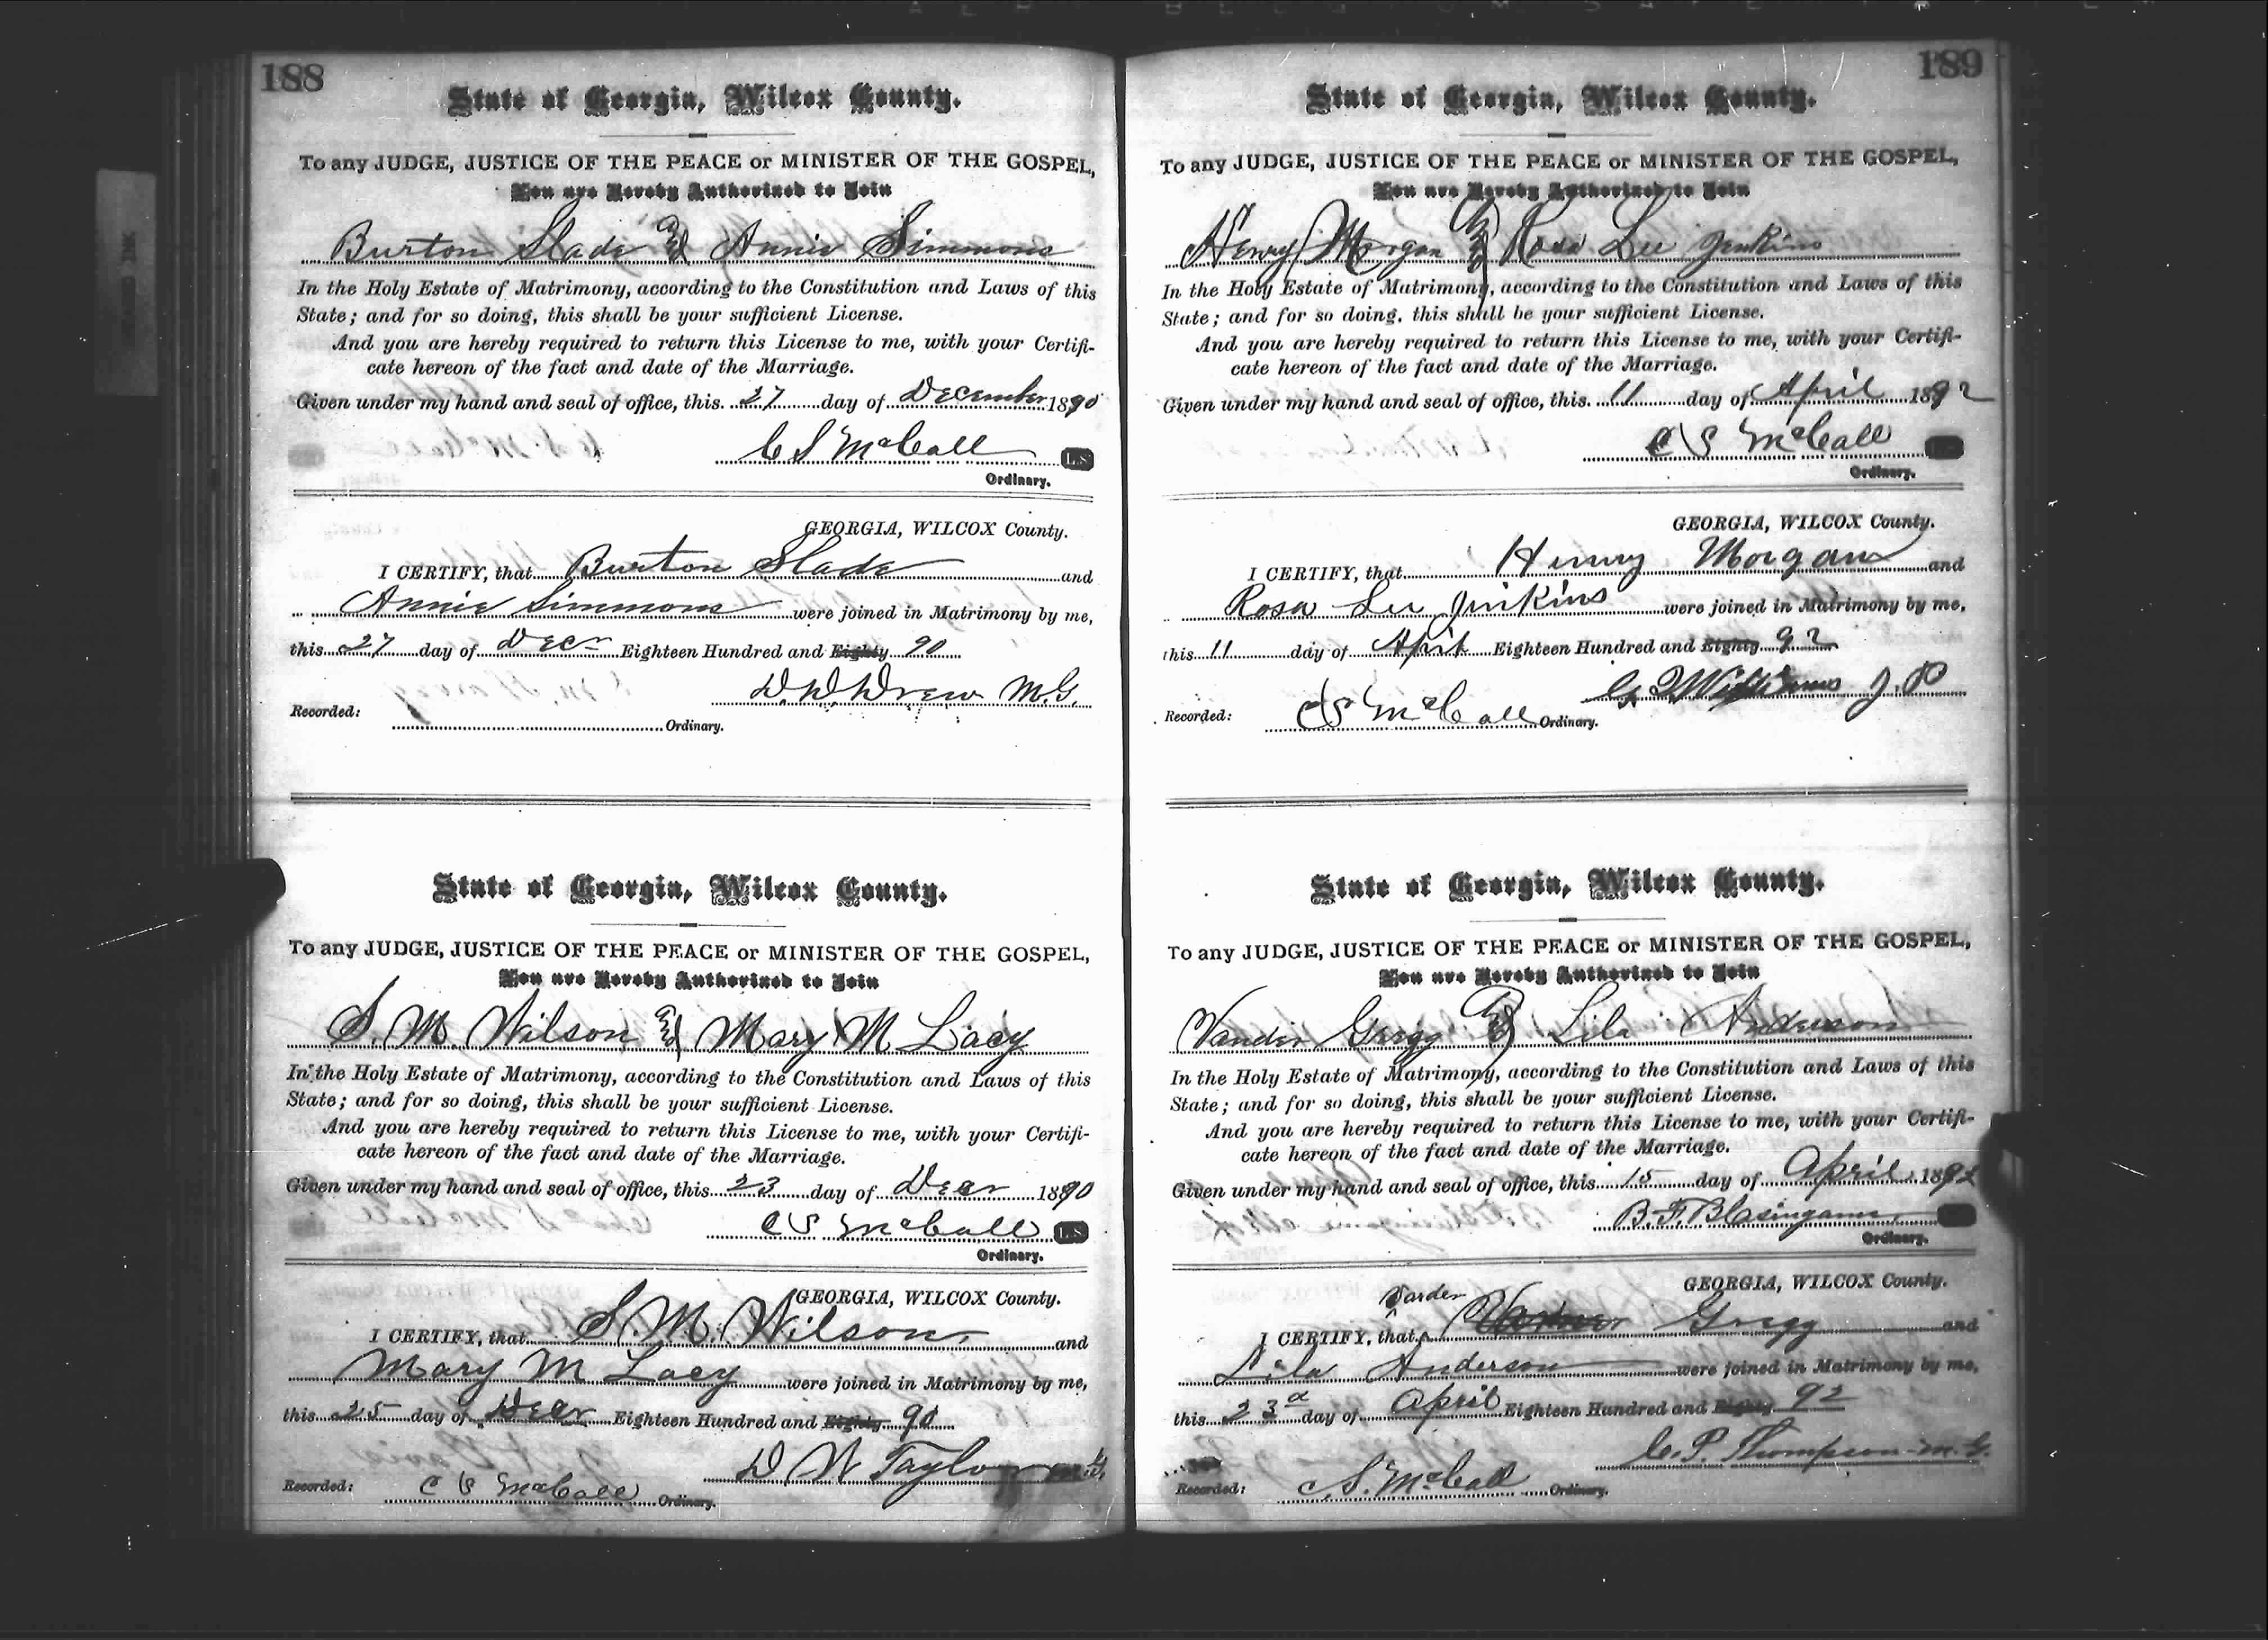 188
State of Georgia, Wilcox County.
To any JUDGE, JUSTICE OF THE PEACE or MINISTER OF THE GOSPEL,
You are Hereby Authorized to Join
Burton Slade and Annie Simmons
In the Holy Estate of Matrimony, according to the Constitution and Laws of this
State; and for so doing, this shall be your sufficient License.
And you are hereby required to return this License to me, with your Certifi-
cate hereon of the fact and date of the Marriage.
Given under my hand and seal of office, this 27 day of December 1890
C S McCall L.S
Ordinary.
GEORGIA, WILCOX County.
I CERTIFY, that Burton Slade and
Annie Simmons were joined in Matrimony by me,
this 27 day of Decr Eighteen Hundred and Eighty 90
D. W. Drew M.G.
Recorded: Ordinary.
State of Georgia, Wilcox County.
To any JUDGE, JUSTICE OF THE PEACE or MINISTER OF THE GOSPEL,
You are Hereby Authorized to Join
S. M. Wilson and Mary M Lacy
In the Holy Estate of Matrimony, according to the Constitution and Laws of this
State; and for so doing, this shall be your sufficient License.
And you are hereby required to return this License to me, with your Certifi-
cate hereon of the fact and date of the Marriage.
Given under my hand and seal of office, this 23 day of Decr 1890
C S McCall L.S
Ordinary.
GEORGIA, WILCOX County.
I CERTIFY, that S. M. Wilson and
Mary M Lacy were joined in Matrimony by me,
this 25 day of Decr Eighteen Hundred and Eighty 90
D W Taylor
Recorded: C S McCall Ordinary.
189
State of Georgia, Wilcox County.
To any JUDGE, JUSTICE OF THE PEACE or MINISTER OF THE GOSPEL,
You are Hereby Authorized to Join
Henry Morgan and Rosa Lee Jenkins
In the Holy Estate of Matrimony, according to the Constitution and Laws of this
State; and for so doing, this shall be your sufficient License.
And you are hereby required to return this License to me, with your Certifi-
cate hereon of the fact and date of the Marriage.
Given under my hand and seal of office, this 11 day of April 1892
C S McCall
Ordinary.
GEORGIA, WILCOX County.
I CERTIFY, that Henry Morgan and
Rosa Lee Jinkins were joined in Matrimony by me,
this 11 day of April Eighteen Hundred and Eighty 92
Williams J. P
Recorded: C S McCall Ordinary.
State of Georgia, Wilcox County.
To any JUDGE, JUSTICE OF THE PEACE or MINISTER OF THE GOSPEL,
You are Hereby Authorized to Join
Vander Gregg and Lila Anderson
In the Holy Estate of Matrimony, according to the Constitution and Laws of this
State; and for so doing, this shall be your sufficient License.
And you are hereby required to return this License to me, with your Certifi-
cate hereon of the fact and date of the Marriage.
Given under my hand and seal of office, this 15 day of April 1892
B. F. Blasingame
Ordinary.
GEORGIA, WILCOX County.
Varder
I CERTIFY, that Gregg and
Lila Anderson were joined in Matrimony by me,
this 23d day of April Eighteen Hundred and Eighty 92
C. P. Thompson M. G.
Recorded: C. S. McCall Ordinary.